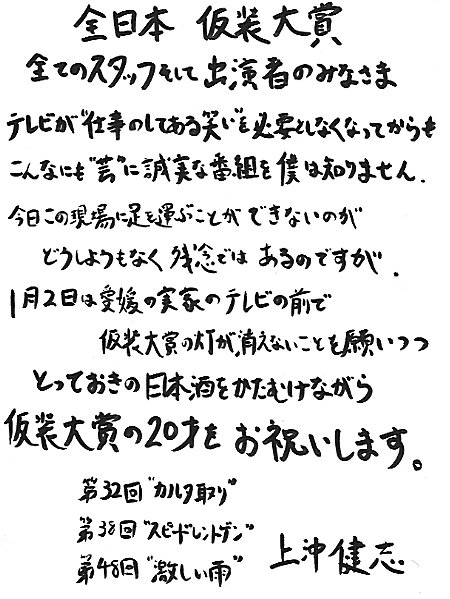 全日本 仮装大賞
全てのスタッフそして出演者のみなさま
テレビが"仕事のしてある笑い"を必要としなくなってからも
こんなにも"芸"に誠実な番組を僕は知りません.
今日この現場に足を運ぶことができないのが
どうしようもなく残念ではあるのですが.
1月2日は愛媛の実家のテレビの前で
仮装大賞の灯が消えないことを願いつつ
とっておきの日本酒をかたむけながら
仮装大賞の20才をお祝いします。
第32回"カルタ取り"
第38回"スピードレントゲン"
第48回"激しい雨"
上沖健志